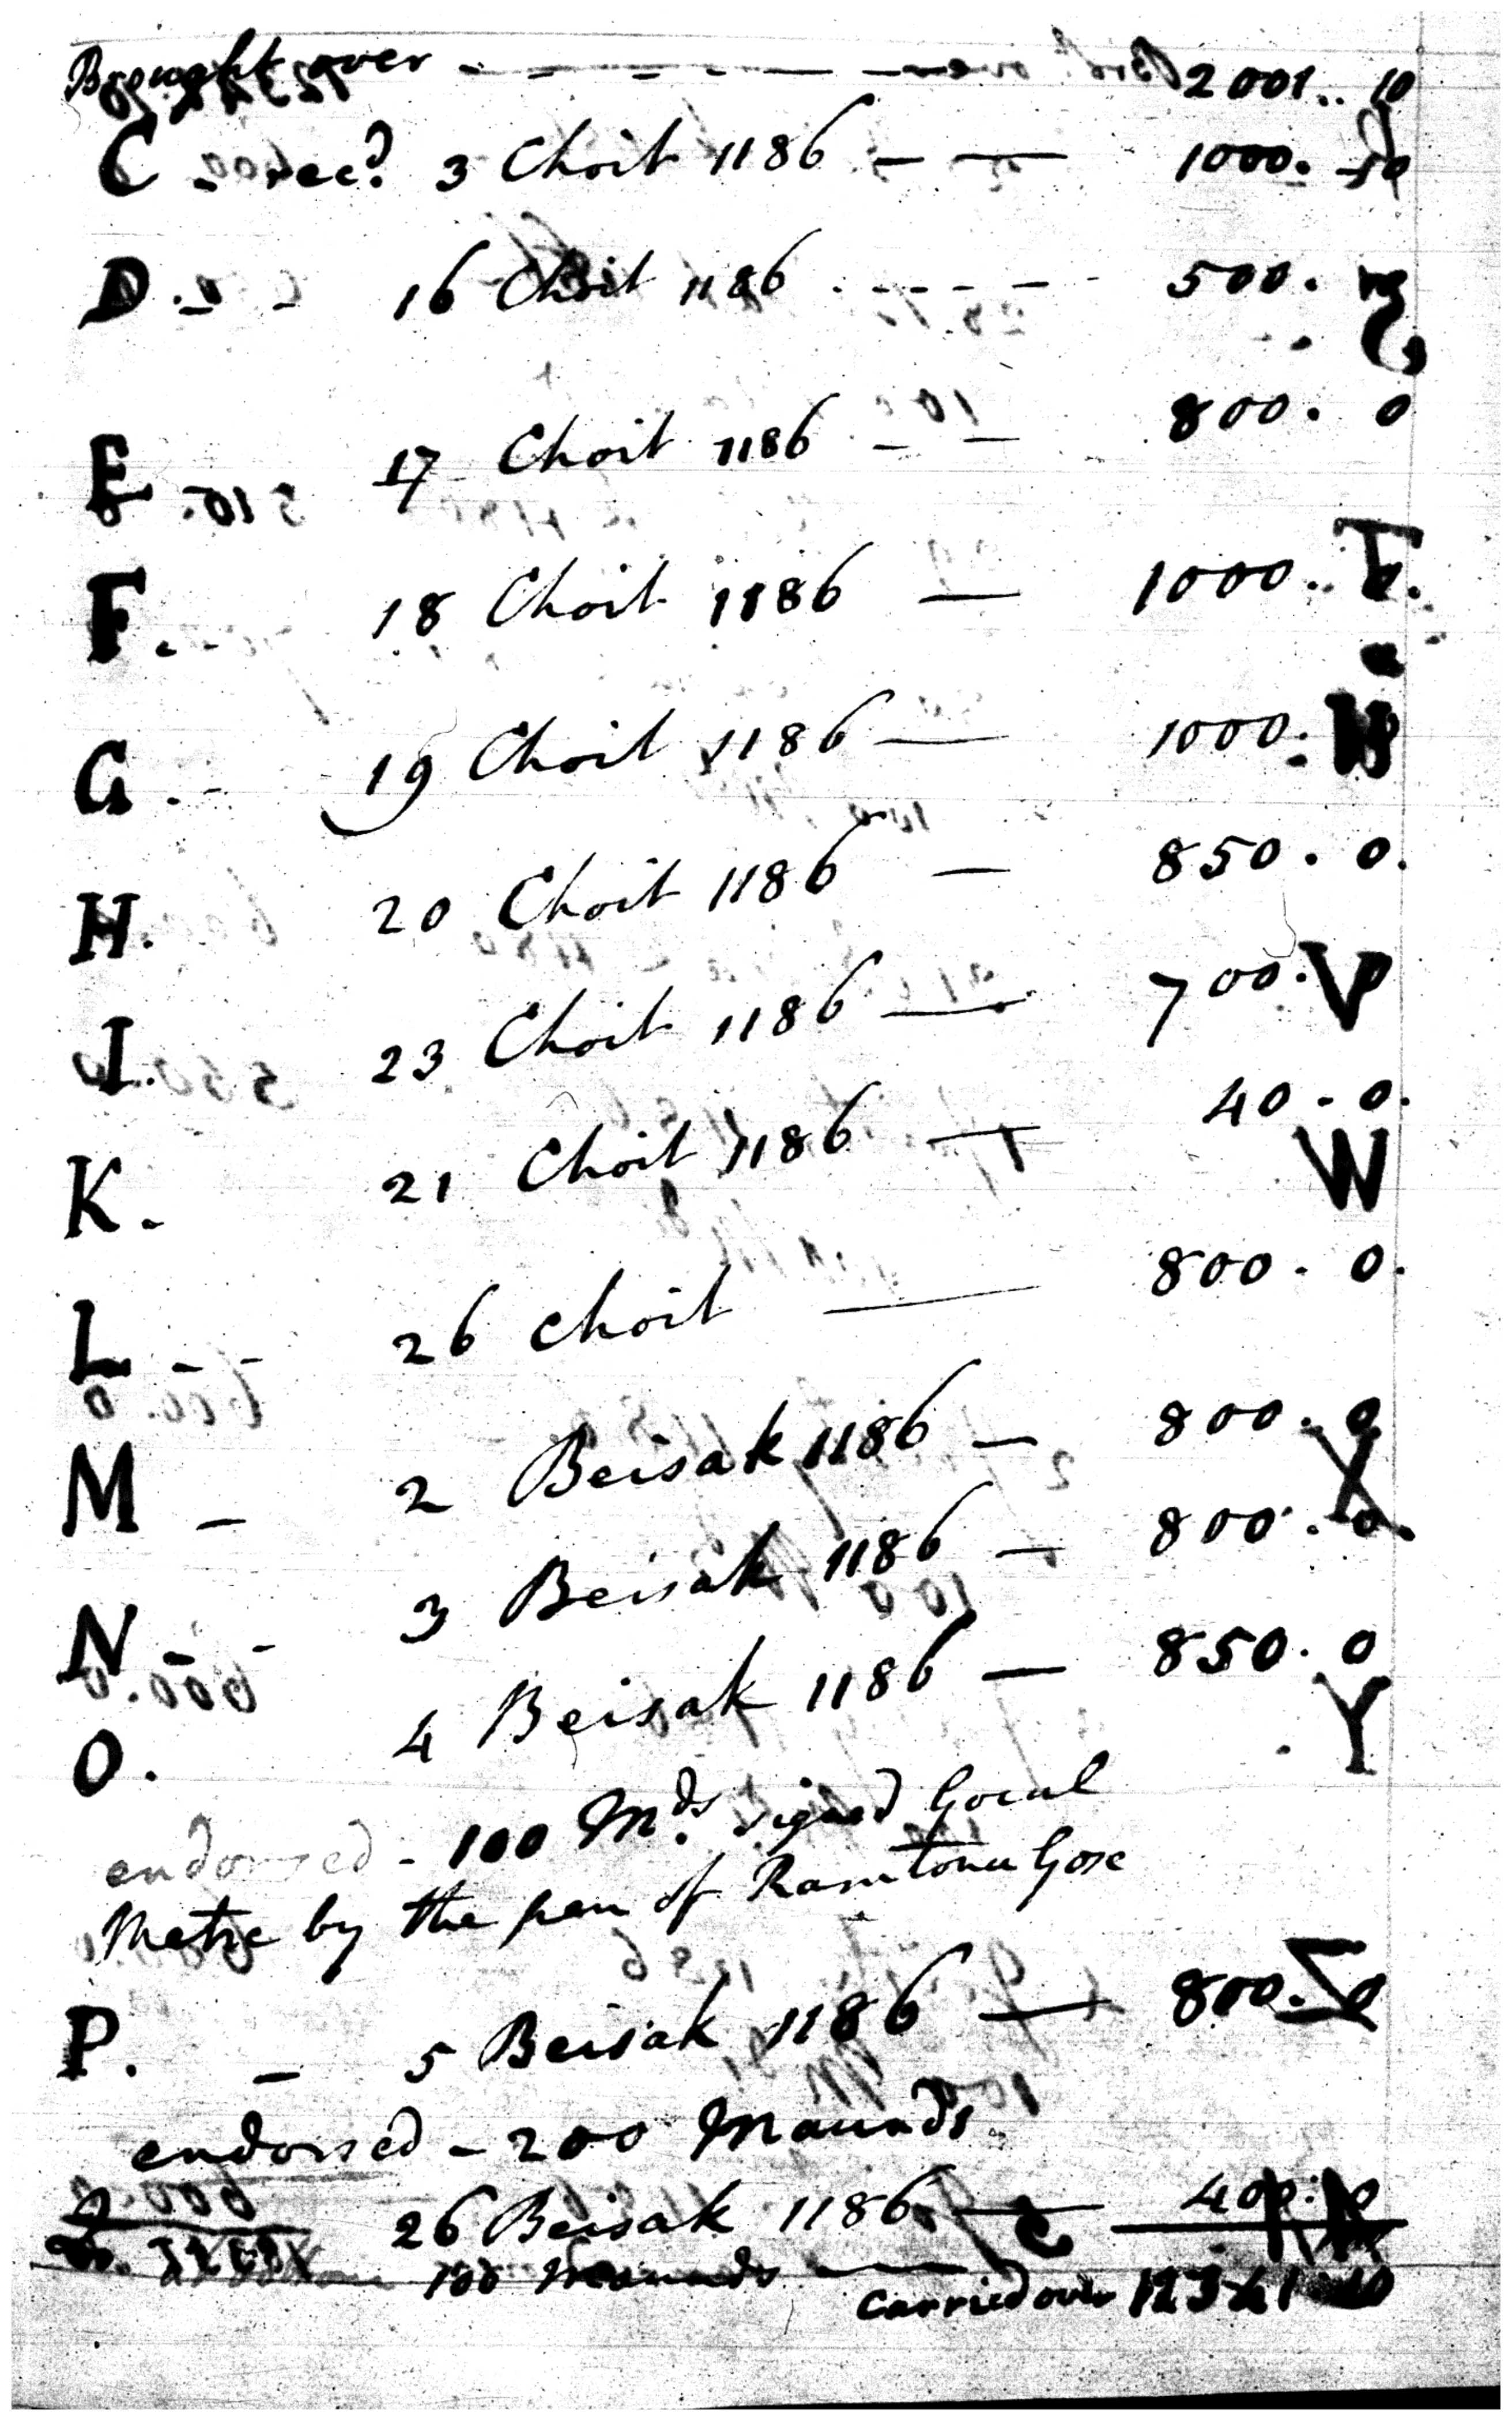 Brought over - - - - - - 2001.. 10
C - recd. 3 Choit 1186 - — 1000.
D. - - 16 Choit 1186 - - - - 500.
E 17 Choit 1186 - - 800. 0
F. 18 Choit 1186 — 1000..
G. - 19 Choit 1186 — 1000.
H. 20 Choit 1186 — 850. 0.
I. 23 Choit 1186 — 700. 0
K. 21 Choit 1186 — 40 - 0.
L - - 26 Choit — 800. 0.
M - 2 Beisak 1186 — 800. 0
N - - 3 Beisak 1186 — 800. 0.
O. 4 Beisak 1186 — 850. 0
endorsed - 100 Mds. signed Gocul
Metre by the pen of Ramtonu Gose
P. - 5 Beisak 1186 — 800. 0
endorsed - 200 Maunds
Q 26 Beisak 1186 — 400. 0
100 Maunds — Carried over 12341 10